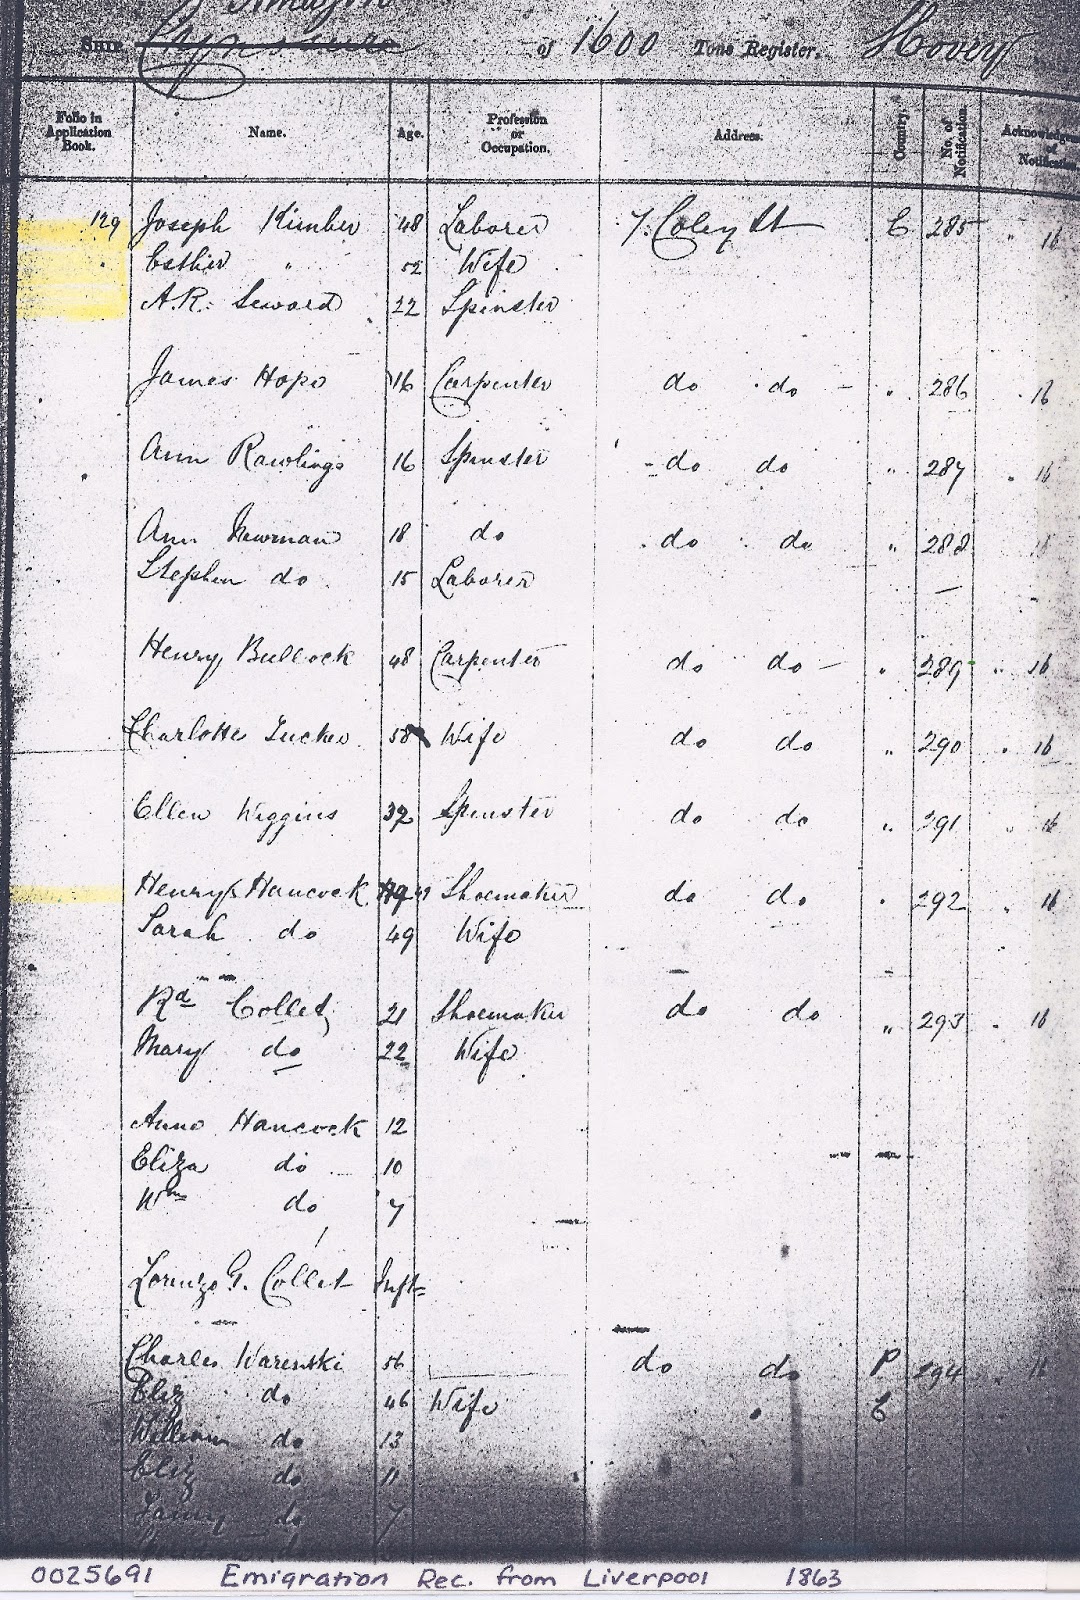 Amazon
Ship Cynosure of 1600 Tons Register. Hovey
Folio in Application Book. Name. Age. Profession or Occupation. Address. Country. No. of Notification. Acknowledgment of Notification
129 Joseph Kimber 48 Laborer 7. Coley St E 285 " 16
. Esther " 52 Wife
A.R. Seward 22 Spinster
James Hope 16 Carpenter do do " 286 16
Ann Rawlings 16 Spinster do do " 287 " 16
Ann Newman 18 do do do " 288 16
Stephen do 15 Laborer —
Henry Bullock 48 Carpenter do do " 289 " 16
Charlotte Tucker 58 Wife do do " 290 " 16
Ellen Wiggins 32 Spinster do do " 291 " 16
Henry Hancock 49 Shoemaker do do " 292 " 16
Sarah do 49 Wife
Rd Collet 21 Shoemaker do do " 293 " 16
Mary do 22 Wife
Anne Hancock 12
Eliza do 10
Wm do 7
Lorenzo G. Collet Inft
Charles Warenski 56 do do P 294 " 16
Eliz do 46 Wife E
William do 13
Eliz do 11
Fanny do 7
0025691 Emigration Rec. from Liverpool 1863